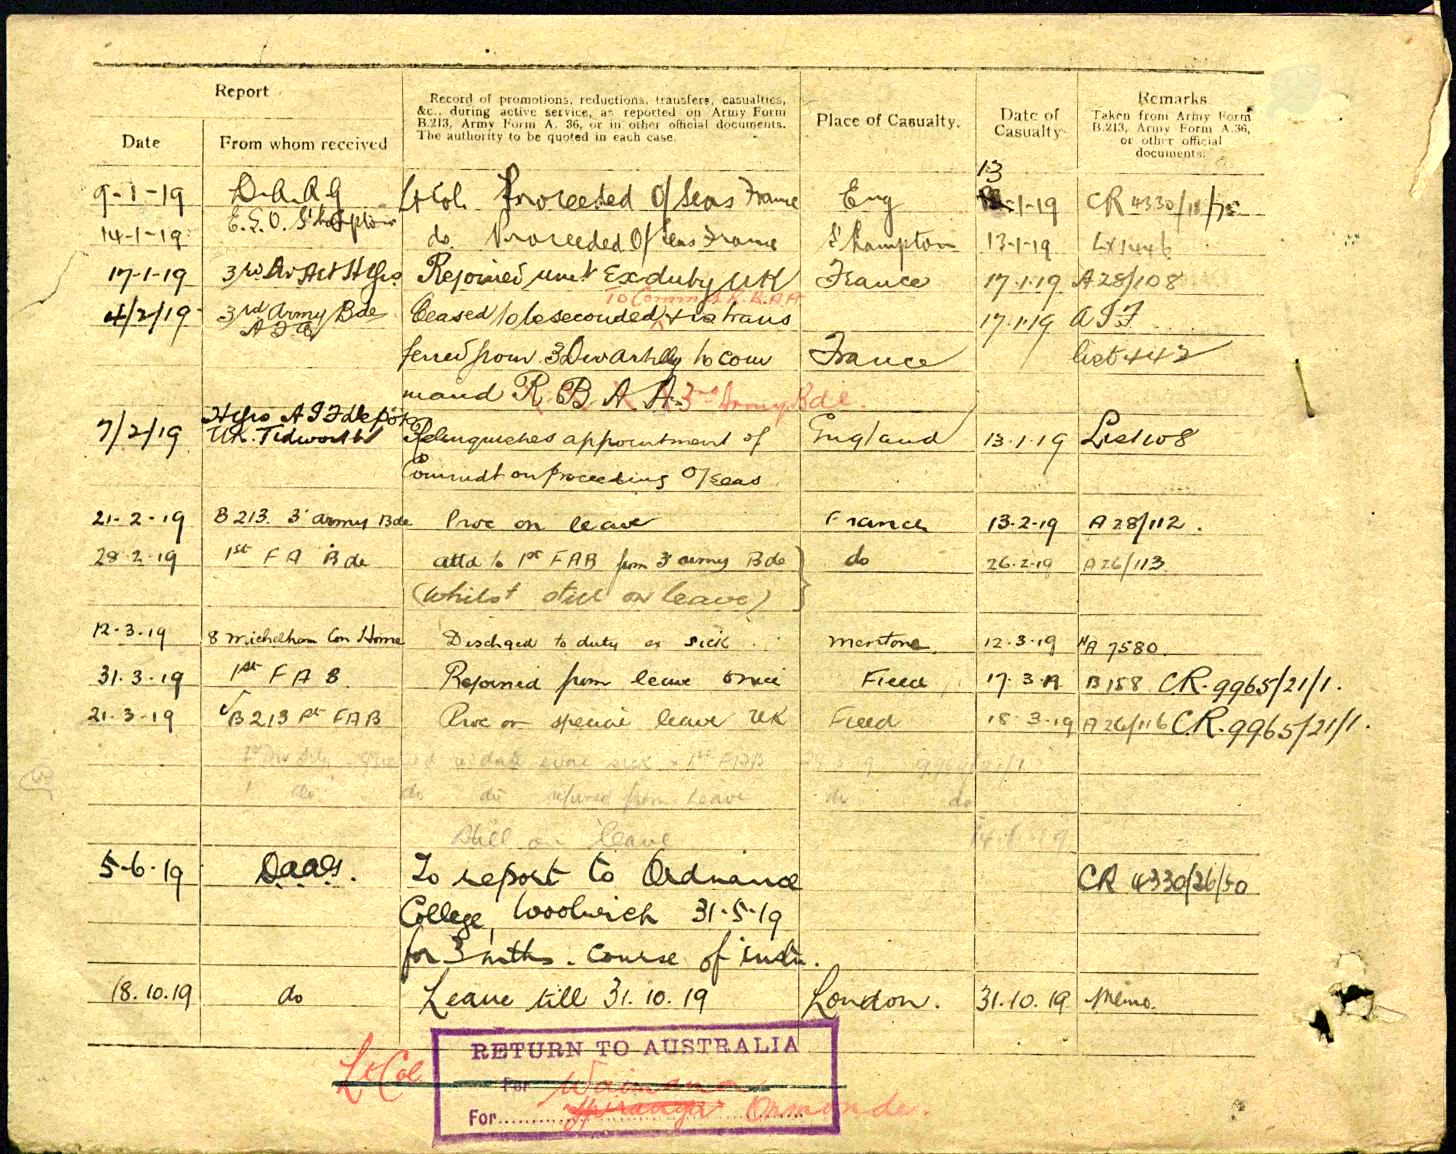 Report
Record of promotions, reductions, transfers, casualties,
&c., during active service, as reported on Army Form
B.213, Army Form A. 36, or in other official documents.
The authority to be quoted in each case.
Place of Casualty.
Date of
Casualty
Remarks
Taken from Army Form
B.213, Army Form A.36,
or other official
documents.
Date
From whom received
13
9-1-19 D.A.A.G Lt Col. Proceeded O/Seas France Eng -1-19 CR 4330/18/75
14-1-19 E.E.O. S'hampton do. Proceeded O/Seas France S'hampton 13-1-19
17-1-19 3rd Rejoined unit Ex duty UK France 17.1.19 A28/108
To Comm
4/2/19 3rd Army Bde Ceased to be seconded & is trans 17.1.19 A I F
A F A
ferred from 3 Div Arty to com France list 442
mand R B A A. 3rd Army Bde.
Hqrs A I F depots
7/2/19 UK. Tidworth Relinquishes appointment of England 13.1.19 List 108
Commdt on proceeding O/seas
21-2-19 B213. 3 Army Bde Proc on leave France 13-2-19 A28/112.
28-2-19 1st F A Bde attd to 1st FAB from 3 army Bde do 26-2-19 A26/113
(whilst still on leave)
12-3-19 8 Michelham Con Home Dischged to duty ex sick Mentone. 12-3-19 HA 7580.
31-3-19 1st F A B. Rejoined from leave Field 17-3-19 B158 CR. 9965/21/1.
21-3-19 B213 1st FAB Proc on special leave UK Field 18-3-19 A26/116 CR. 9965/21/1.
sick 1st FAB
do do do from leave do do
Still on leave
5-6-19 D.A.A.G. To report to Ordnance CR 4330/26/50
College, Woolwich 31-5-19
for 3 mths. course of instn.
18.10.19 do Leave till 31.10.19 London. 31.10.19 Memo.
Lt Col
RETURN TO AUSTRALIA
For Waimana
For Ormonde.